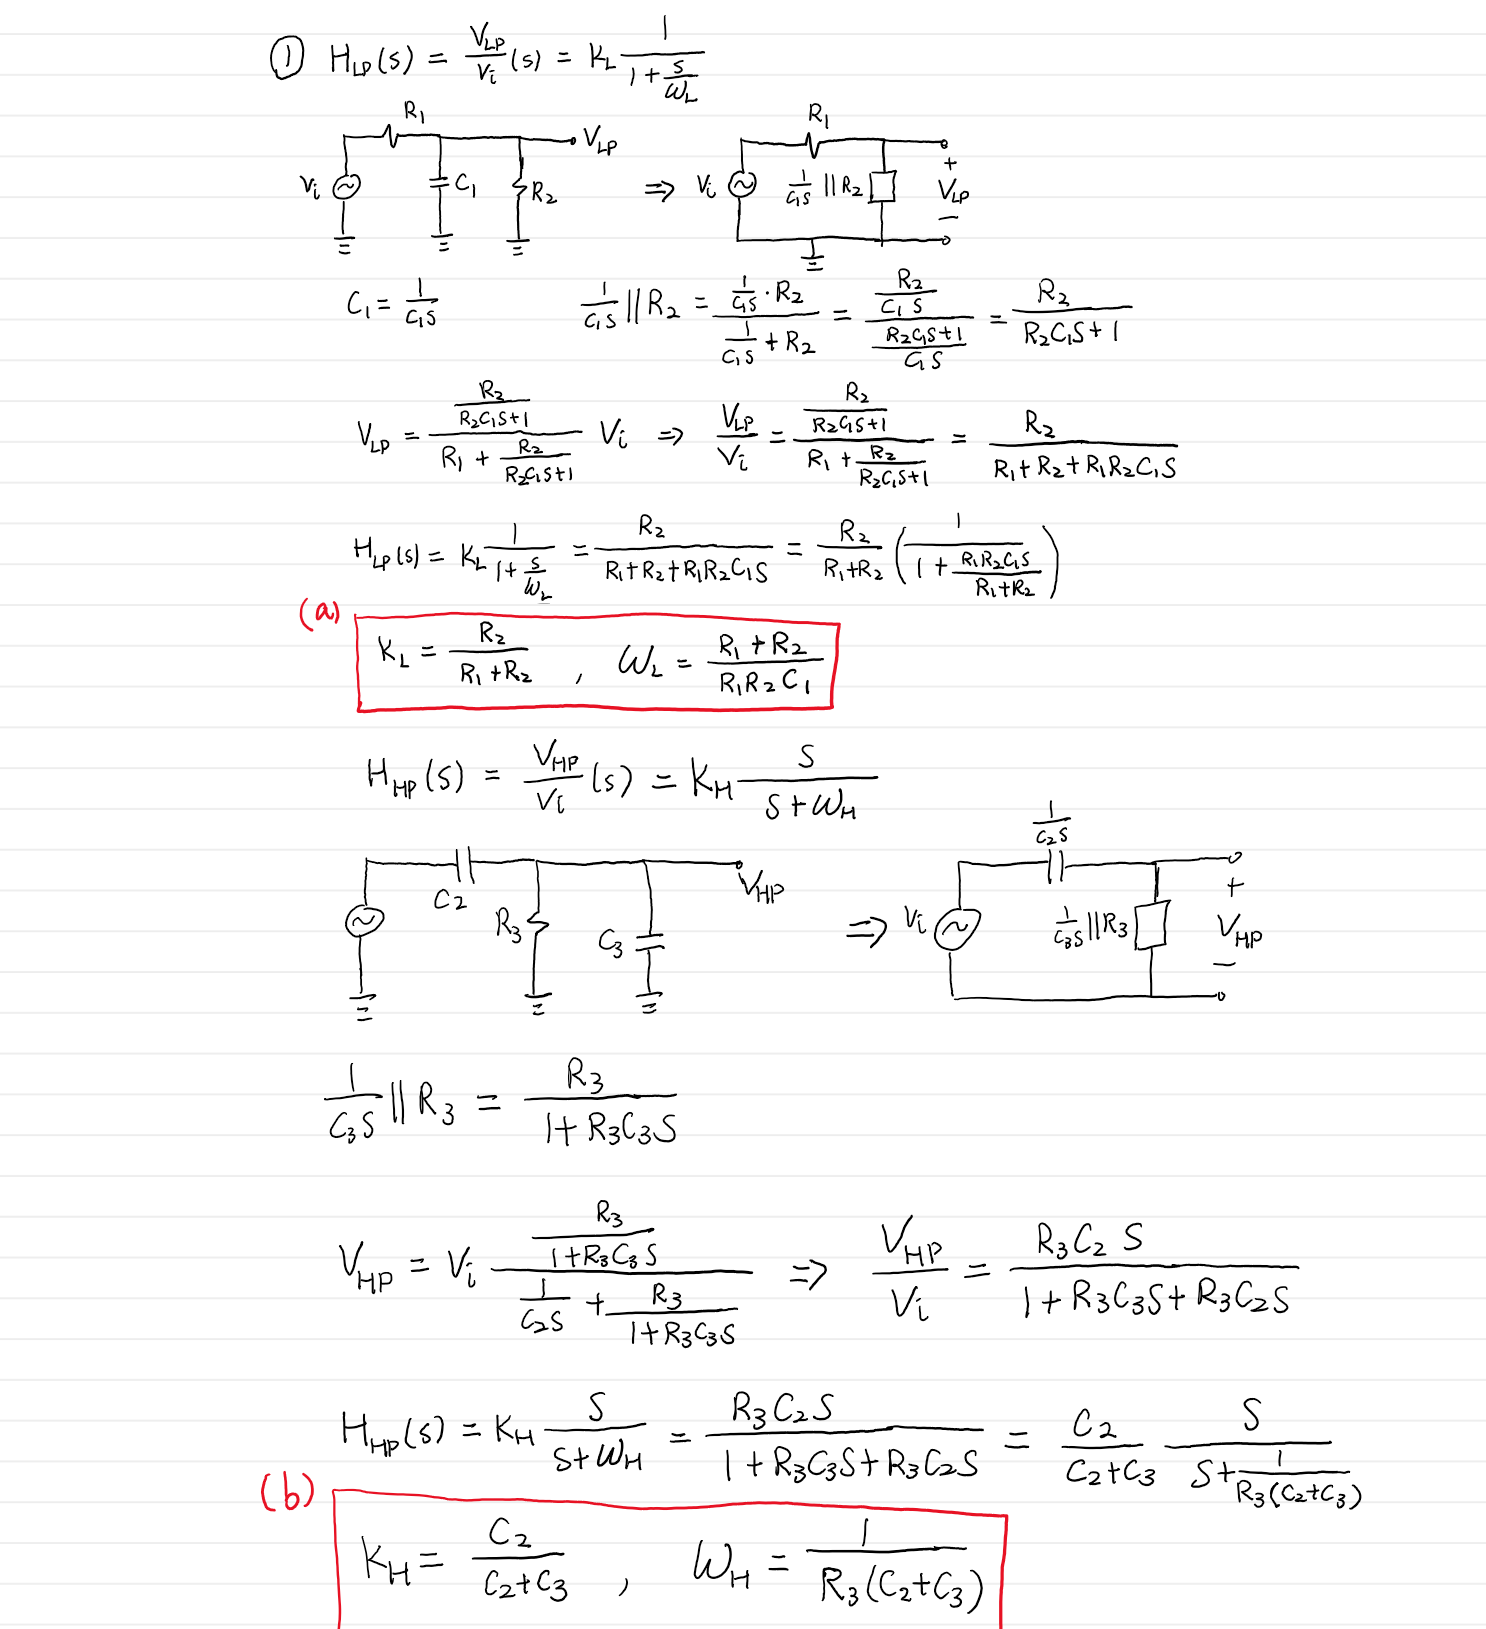 ① H_LP(s) = V_LP/V_i (s) = K_L 1/(1 + s/ω_L)
R₁ V_LP R₁
V_i C₁ R₂ ⇒ V_i 1/(C₁S) || R₂ + V_LP −
C₁ = 1/(C₁S) 1/(C₁S) || R₂ = (1/(C₁S) · R₂)/(1/(C₁S) + R₂) = (R₂/(C₁S))/((R₂C₁S+1)/(C₁S)) = R₂/(R₂C₁S + 1)
V_LP = (R₂/(R₂C₁S+1))/(R₁ + R₂/(R₂C₁S+1)) V_i ⇒ V_LP/V_i = (R₂/(R₂C₁S+1))/(R₁ + R₂/(R₂C₁S+1)) = R₂/(R₁+R₂+R₁R₂C₁S)
H_LP(s) = K_L 1/(1 + s/ω_L) = R₂/(R₁+R₂+R₁R₂C₁S) = R₂/(R₁+R₂) (1/(1 + R₁R₂C₁S/(R₁+R₂)))
(a)
K_L = R₂/(R₁+R₂) , ω_L = (R₁+R₂)/(R₁R₂C₁)
H_HP(s) = V_HP/V_i (s) = K_H S/(S+ω_H)
C₂ R₃ C₃ V_HP ⇒ V_i 1/(C₂S) 1/(C₃S) || R₃ + V_HP −
1/(C₃S) || R₃ = R₃/(1+R₃C₃S)
V_HP = V_i (R₃/(1+R₃C₃S))/(1/(C₂S) + R₃/(1+R₃C₃S)) ⇒ V_HP/V_i = R₃C₂S/(1+R₃C₃S+R₃C₂S)
H_HP(s) = K_H S/(S+ω_H) = R₃C₂S/(1+R₃C₃S+R₃C₂S) = C₂/(C₂+C₃) S/(S+1/(R₃(C₂+C₃)))
(b)
K_H = C₂/(C₂+C₃) , ω_H = 1/(R₃(C₂+C₃))